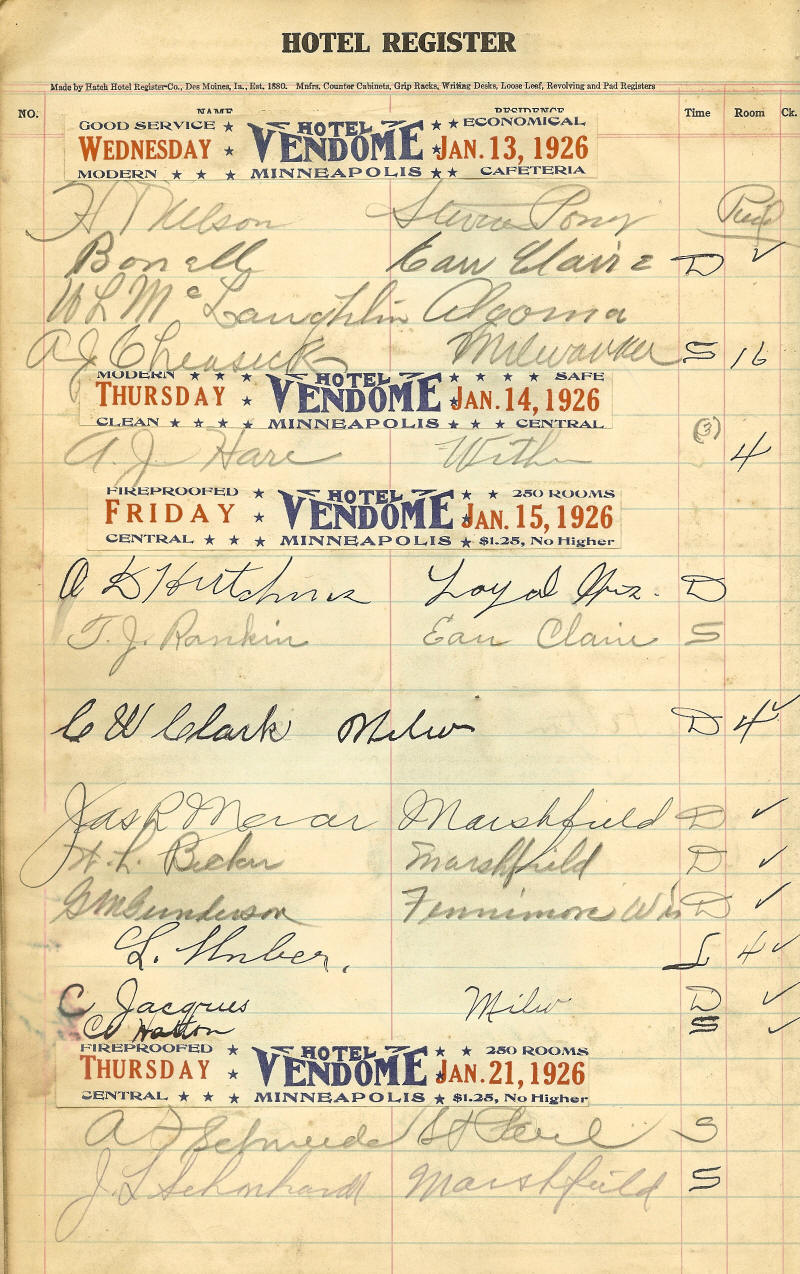 HOTEL REGISTER
Made by Hatch Hotel Register Co., Des Moines, Ia., Est. 1880. Mnfrs. Counter Cabinets, Grip Racks, Writing Desks, Loose Leaf, Revolving and Pad Registers
NO. NAME RESIDENCE Time Room Ck.
GOOD SERVICE ★ HOTEL ★ ★ ECONOMICAL
WEDNESDAY ★ VENDOME ★ JAN. 13, 1926
MODERN ★ ★ ★ MINNEAPOLIS ★ ★ CAFETERIA
H Nelson Stevens Point
Bonell Eau Claire D ✓
W L McLaughlin Algoma
A J Milwaukee S 16
MODERN ★ ★ ★ HOTEL ★ ★ ★ ★ SAFE
THURSDAY ★ VENDOME ★ JAN. 14, 1926
CLEAN ★ ★ ★ ★ MINNEAPOLIS ★ ★ ★ CENTRAL
A. J. Hare (3) 4
FIREPROOFED ★ HOTEL ★ ★ 250 ROOMS
FRIDAY ★ VENDOME ★ JAN. 15, 1926
CENTRAL ★ ★ ★ MINNEAPOLIS ★ $1.25, No Higher
A D Hutchins Loyal Wis. D
T. J. Rankin Eau Claire S
C W Clark Milw D 4 ✓
Jas R Marshfield D ✓
H. L. Becker Marshfield D ✓
G M Gunderson Fennimore Wis D ✓
L. Huber. L 4 ✓
C Jacques Milw D ✓
CW Hatton S ✓
FIREPROOFED ★ HOTEL ★ ★ 250 ROOMS
THURSDAY ★ VENDOME ★ JAN. 21, 1926
CENTRAL ★ ★ ★ MINNEAPOLIS ★ $1.25, No Higher
A F Schneider St Paul S
J. L. Schonhardt Marshfield S